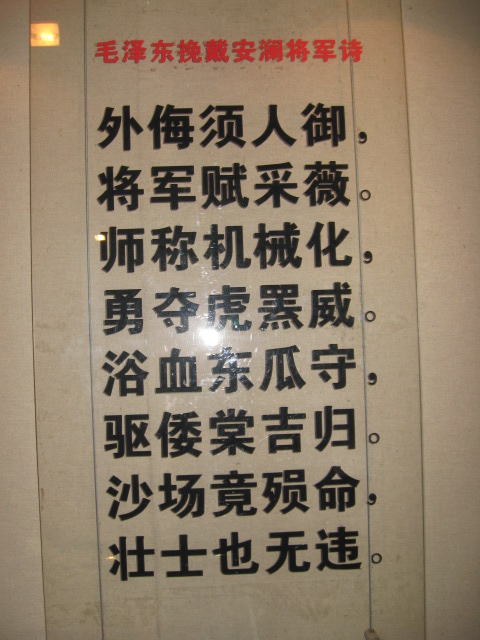 毛泽东挽戴安澜将军诗
外侮须人御，
将军赋采薇。
师称机械化，
勇夺虎罴威。
浴血东瓜守，
驱倭棠吉归。
沙场竟殒命，
壮士也无违。